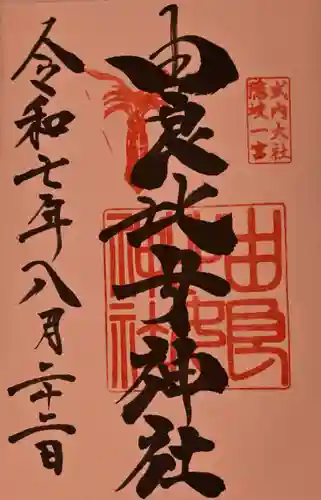 式内大社
隠岐一宮
由良比女神社
由良
比女
神社
令和七年八月二十二日